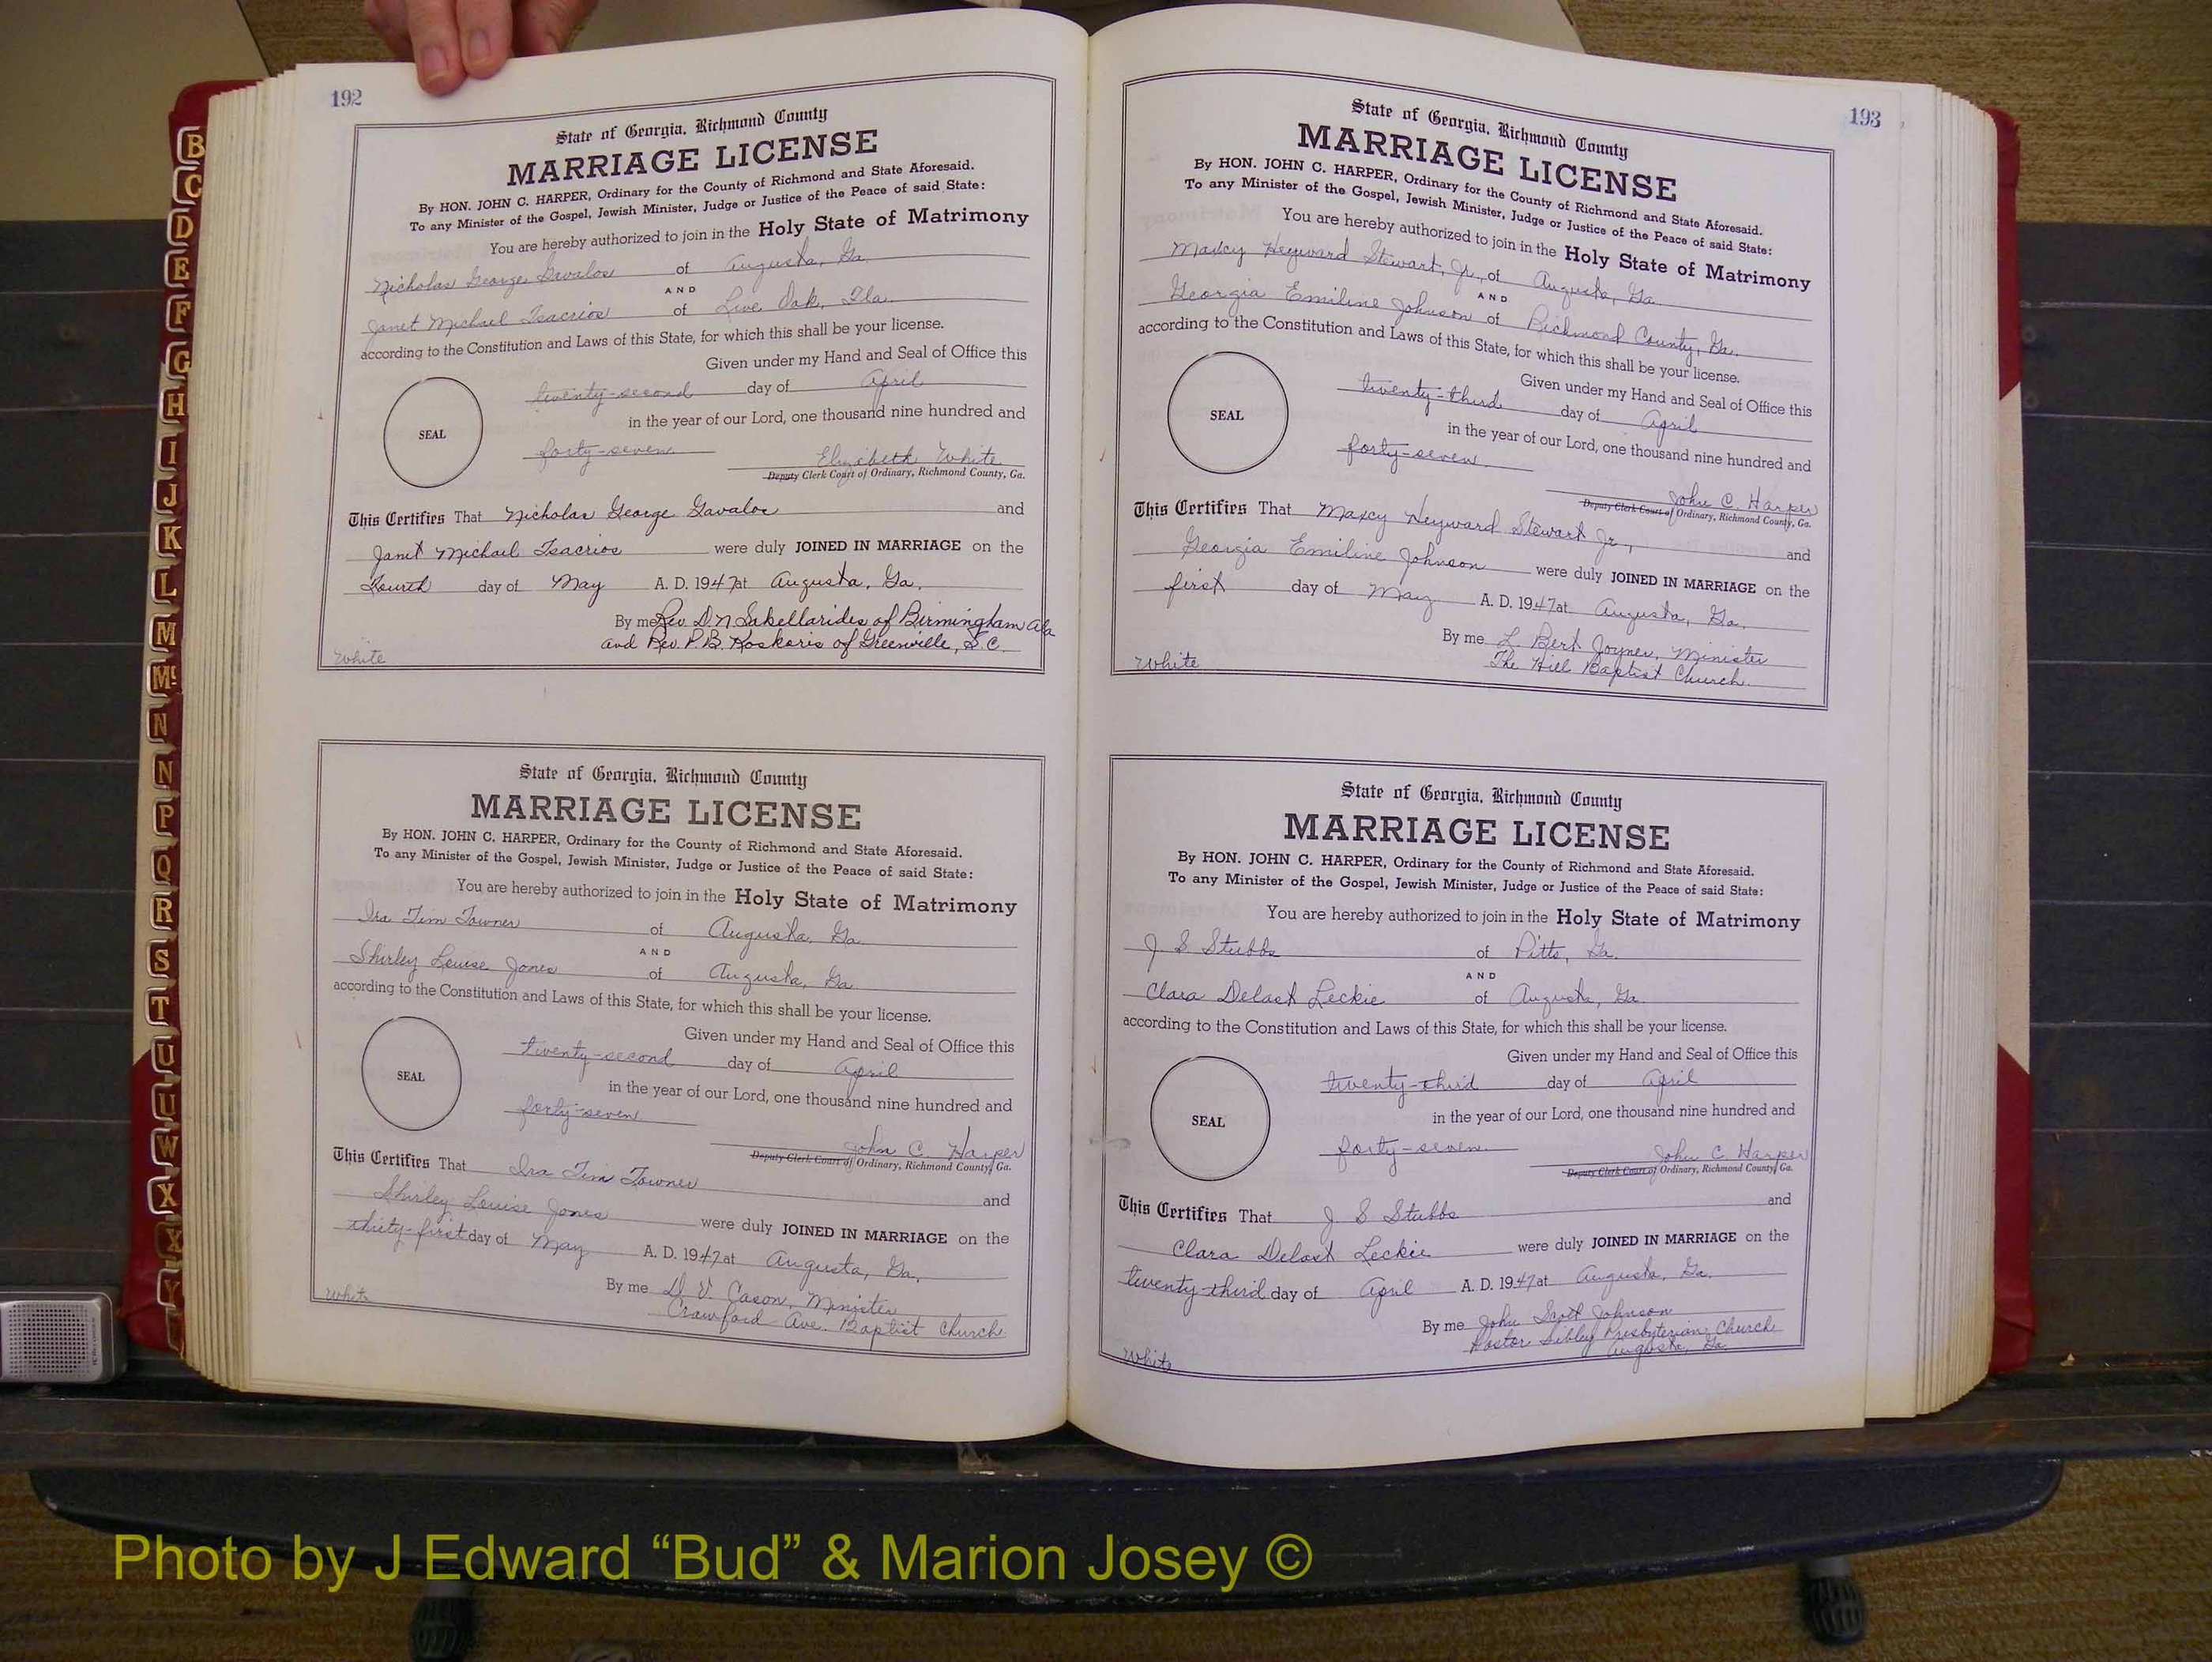 192
State of Georgia, Richmond County
MARRIAGE LICENSE
By HON. JOHN C. HARPER, Ordinary for the County of Richmond and State Aforesaid.
To any Minister of the Gospel, Jewish Minister, Judge or Justice of the Peace of said State:
You are hereby authorized to join in the Holy State of Matrimony
Nicholas George Gavalos of Augusta, Ga.
AND
Janet Michael Tsacrios of Live Oak, Fla.
according to the Constitution and Laws of this State, for which this shall be your license.
Given under my Hand and Seal of Office this
twenty-second day of April
in the year of our Lord, one thousand nine hundred and
SEAL
forty-seven.
Elizabeth White
Deputy Clerk Court of Ordinary, Richmond County, Ga.
This Certifies That Nicholas George Gavalos and
Janet Michael Tsacrios were duly JOINED IN MARRIAGE on the
Fourth day of May A. D. 1947 at Augusta, Ga.
By me Rev D. N. Sakellarides of Birmingham Ala
and Rev. P. B. Koskoris of Greenville, S.C.
White
State of Georgia, Richmond County
MARRIAGE LICENSE
By HON. JOHN C. HARPER, Ordinary for the County of Richmond and State Aforesaid.
To any Minister of the Gospel, Jewish Minister, Judge or Justice of the Peace of said State:
You are hereby authorized to join in the Holy State of Matrimony
Ira Tim Towner of Augusta, Ga.
AND
Shirley Louise Jones of Augusta, Ga.
according to the Constitution and Laws of this State, for which this shall be your license.
Given under my Hand and Seal of Office this
twenty-second day of April
SEAL
in the year of our Lord, one thousand nine hundred and
forty-seven
John C. Harper
Deputy Clerk Court of Ordinary, Richmond County, Ga.
This Certifies That Ira Tim Towner
Shirley Louise Jones and
were duly JOINED IN MARRIAGE on the
thirty-first day of May A. D. 1947 at Augusta, Ga.
By me D. V. Cason, Minister
Crawford Ave. Baptist Church
White
193
State of Georgia, Richmond County
MARRIAGE LICENSE
By HON. JOHN C. HARPER, Ordinary for the County of Richmond and State Aforesaid.
To any Minister of the Gospel, Jewish Minister, Judge or Justice of the Peace of said State:
You are hereby authorized to join in the Holy State of Matrimony
Maxcy Heyward Stewart, Jr., of Augusta, Ga.
AND
Georgia Emiline Johnson of Richmond County, Ga.
according to the Constitution and Laws of this State, for which this shall be your license.
Given under my Hand and Seal of Office this
twenty-third day of April
SEAL
in the year of our Lord, one thousand nine hundred and
forty-seven.
John C. Harper
Deputy Clerk Court of Ordinary, Richmond County, Ga.
This Certifies That Maxcy Heyward Stewart Jr., and
Georgia Emiline Johnson were duly JOINED IN MARRIAGE on the
first day of May A. D. 1947 at Augusta, Ga.
By me L. Bert Joyner, Minister
The Hill Baptist Church.
White
State of Georgia, Richmond County
MARRIAGE LICENSE
By HON. JOHN C. HARPER, Ordinary for the County of Richmond and State Aforesaid.
To any Minister of the Gospel, Jewish Minister, Judge or Justice of the Peace of said State:
You are hereby authorized to join in the Holy State of Matrimony
J. S. Stubbs of Pitts, Ga.
AND
Clara Delast Leckie of Augusta, Ga.
according to the Constitution and Laws of this State, for which this shall be your license.
Given under my Hand and Seal of Office this
twenty-third day of April
SEAL
in the year of our Lord, one thousand nine hundred and
forty-seven.
John C. Harper
Deputy Clerk Court of Ordinary, Richmond County, Ga.
This Certifies That J S Stubbs and
Clara Delast Leckie were duly JOINED IN MARRIAGE on the
twenty-third day of April A. D. 1947 at Augusta, Ga.
By me John Scott Johnson
Pastor Sibley Presbyterian Church
Augusta, Ga
White
B
C
D
E
F
G
H
I
J
K
L
M
Mc
N
N
P
Q
R
S
T
U
U
W
X
X
Y
Photo by J Edward “Bud” & Marion Josey ©